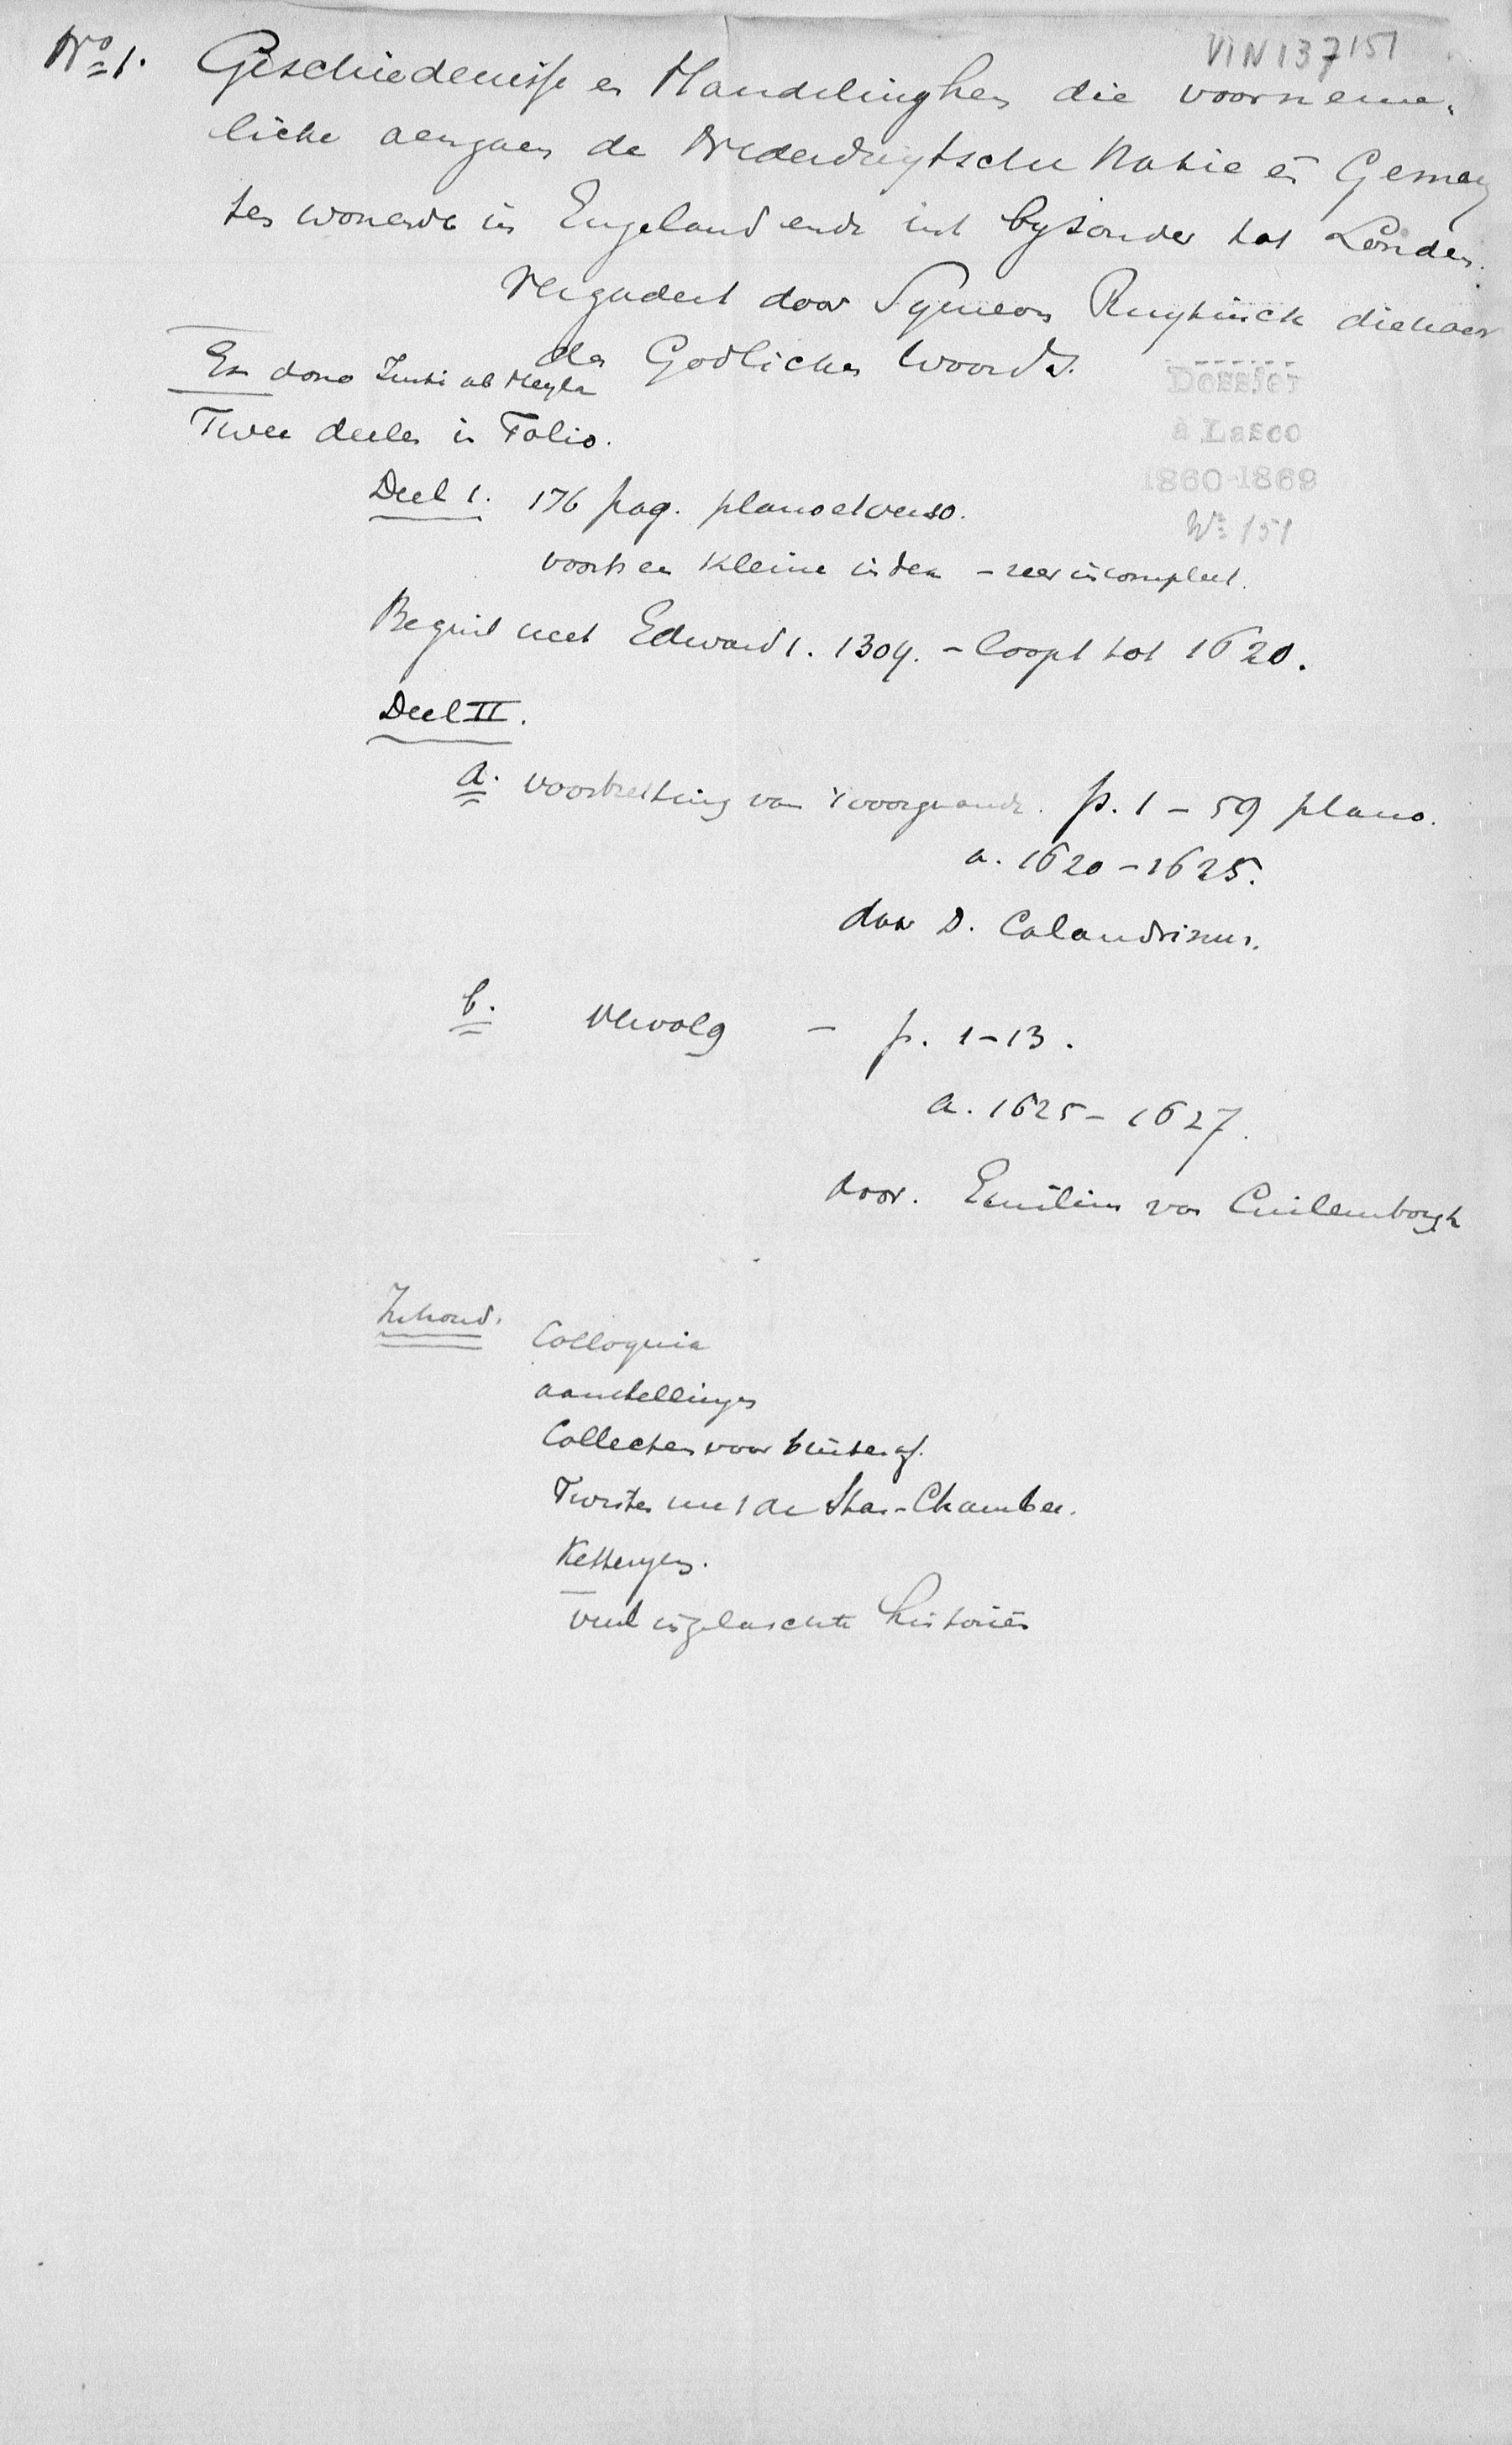 VIN 137 151
No 1. Geschiedenisse en Handelinghen die voorneme-
licke aengaen de Nederduytsche Natie en Gemeyn
ten wonende in Engeland ende int bysonder tot Londen.
Vergadert door Symeon Ruytinck dienaer
des Godlicken Woords.
Ex dono ab Heyla
Twee deelen in Folio.
Dossier
à Lasco
1860-1869
No 151
Deel 1. 176 pag. plano et verso.
voorts een kleine index - zeer incompleet.
Begint met Edward 1. 1304. - loopt tot 1620.
Deel II.
a. voortzetting van 't voorgaande. p. 1 - 59 plano.
a. 1620 - 1625.
door D. Calandrinus.
b. vervolg - p. 1-13.
a. 1625 - 1627.
door. Emilius van Cuilemborgh
Inhoud. Colloquia
aanstellingen
Collecten voor buiten af.
Twisten met de Star-Chamber.
Ketteryen.
veel ingelaschte historien